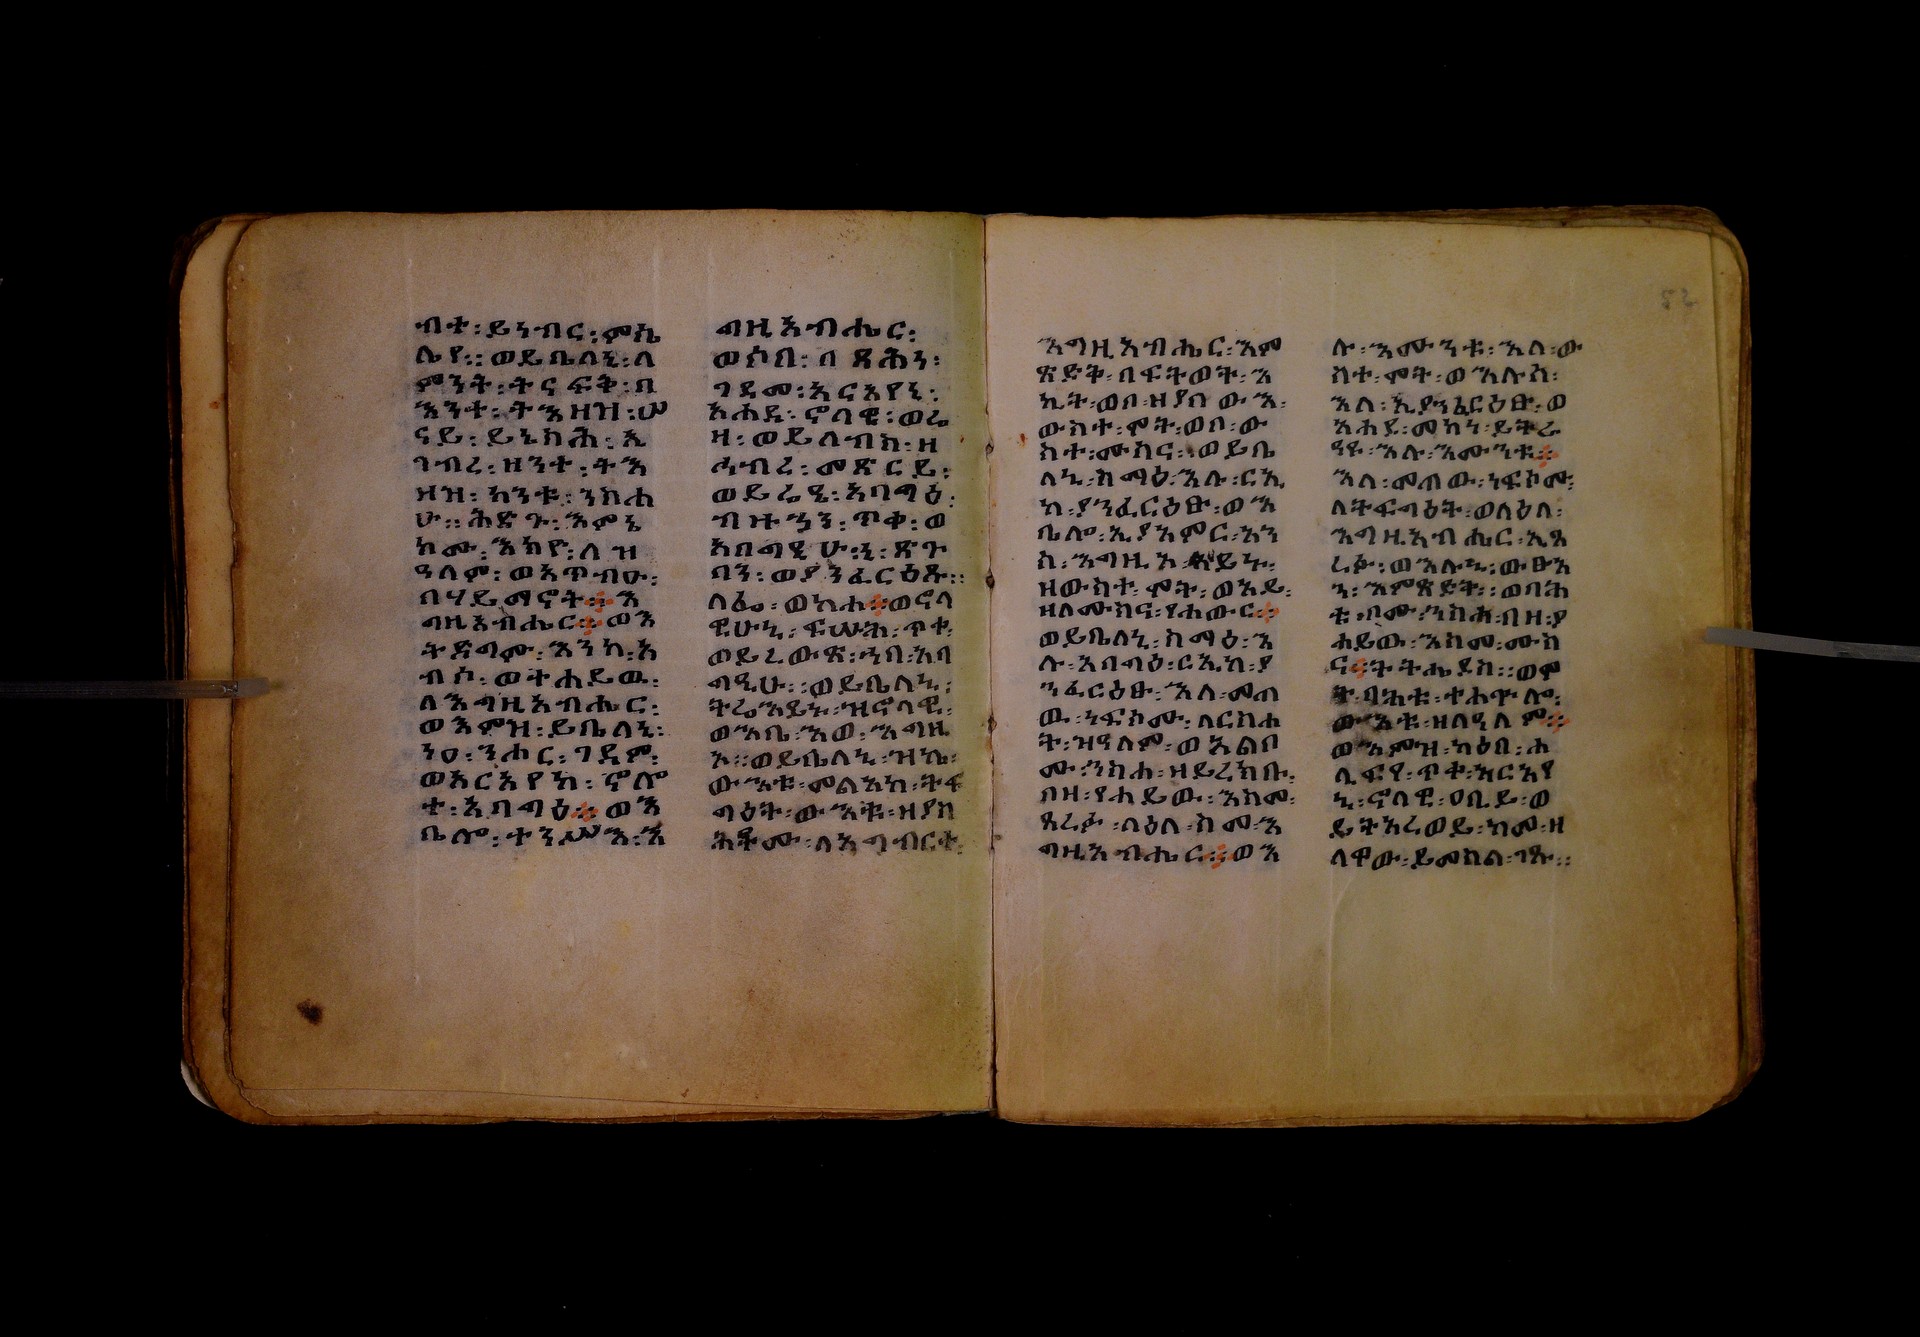 ብተ፡ይነብር፡ምኤ
ሌየ።ወይቤለኒ፡ለ
ምንት፡ትናፍቅ፡በ
እንተ፡ትእዘዝ፡ሠ
ናይ፡ይኔከሕ፡ኢ
ገብረ፡ዘንተ፡ትእ
ዛዝ፡ከንቱ፡ንስሐ
ሁ።ሕድጉ፡እምኒ
ከሙ፡እከዮ፡ለዝ
ዓለም፡ወአጥብዑ፡
በሃይማኖት።እ
ግዚአብሔር።ወእ
ትድግሙ፡እንከ፡አ
ብሶ፡ወትሐይዉ፡
ለእግዚአብሔር፡
ወእምዝ፡ይቤለኒ፡
ንዑ፡ንሖር፡ገዳም፡
ወአርአየከ፡ኖሎ
ተ፡አባግዕ።ወእ
ቤሎ፡ተንሥእ፡እ
ግዚአብሔር፡
ወሶበ፡በጻሕነ፡
ገዳመ፡አርአየኒ፡
አሐደ፡ኖላዊ፡ወሬ
ዛ፡ወይለብስ፡ዘ
ሕብረ፡መጽርይ፡
ወይሬዒ፡አባግዕ፡
ብዙኃን፡ጥቀ፡ወ
አባግዒሁ፡ኒ፡ጽጉ
ባን፡ወያንፈርዕጹ።
ለፌ፡ወከሐ።ወኖላ
ዊሁኒ፡ፍሡሕ፡ጥቀ፡
ወይረውጽ፡ኀበ፡አባ
ግዒሁ።ወይቤለኒ፡
ትሬእይኑ፡ዝኖላዊ፡
ወእቤ፡እወ፡እግዚ
እ።ወይቤለኒ፡ዝኬ፡
ውእቱ፡መልአከ፡ትፍ
ግዕት፡ውእቱ፡ዘያስ
ሕቶሙ፡ለአግብርተ፡
እግዚአብሔር፡እም
ጽድቅ፡በፍትወት፡እ
ኪት፡ወበዘያበውእ፡
ውስተ፡ሞት፡ወበው
ስተ፡ሙስና፡ወይቤ
ለኒ፡ስማዕ፡እሉ፡ርኢ
ከ፡ያንፈርዕፁ፡ወእ
ቤሎ፡ኢያአምር፡አን
ሰ፡እግዚእ፡አይኑ፡
ዘውስተ፡ሞት፡ወአይ፡
ዘለሙስና፡የሐውር።
ወይቤለኒ፡ስማዕ፡እ
ሉ፡አባግዕ፡ርኢከ፡ያ
ንፈርዕፁ፡እለ፡መጠ
ዉ፡ነፍሶሙ፡ለርስሐ
ት፡ዝዓለም፡ወአልቦ
ሙ፡ንስሐ፡ዘይረክቡ፡
በዘ፡የሐይው፡እስመ፡
ጸረፉ፡በዕለ፡ስመ፡እ
ግዚአብሔር።ወእ
ሉ፡እሙንቱ፡እለ፡ው
ስተ፡ሞት፡ወእሉሰ፡
እለ፡ኢያንፈርዕፁ፡ወ
አሐደ፡መካነ፡ይትረ
ዓዩ፡እሉ፡እሙንቱ።
እለ፡መጠው፡ነፍሶሙ፡
ለትፍግዕት፡ወለዕለ፡
እግዚአብሔር፡ኢጸ
ረፉ፡ወእሉኒ፡ውፁአ
ን፡እምጽድቅ።ወባሕ
ቱ፡ቦሙ፡ንስሕ፡በዘ፡የ
ሐይው፡እስመ፡ሙስ
ና።ትትሔደስ።ወሞ
ት፡ባሕቱ፡ተሐጕሎ፡
ውእቱ፡ዘለዓለም።
ወእምዝ፡ካዕበ፡ሐ
ሊፍየ፡ጥቀ፡አርአየ
ኒ፡ኖላዊ፡ዐቢይ፡ወ
ይትአረወይ፡ከመ፡ዘ
ለዋው፡ይመስል፡ገጹ።